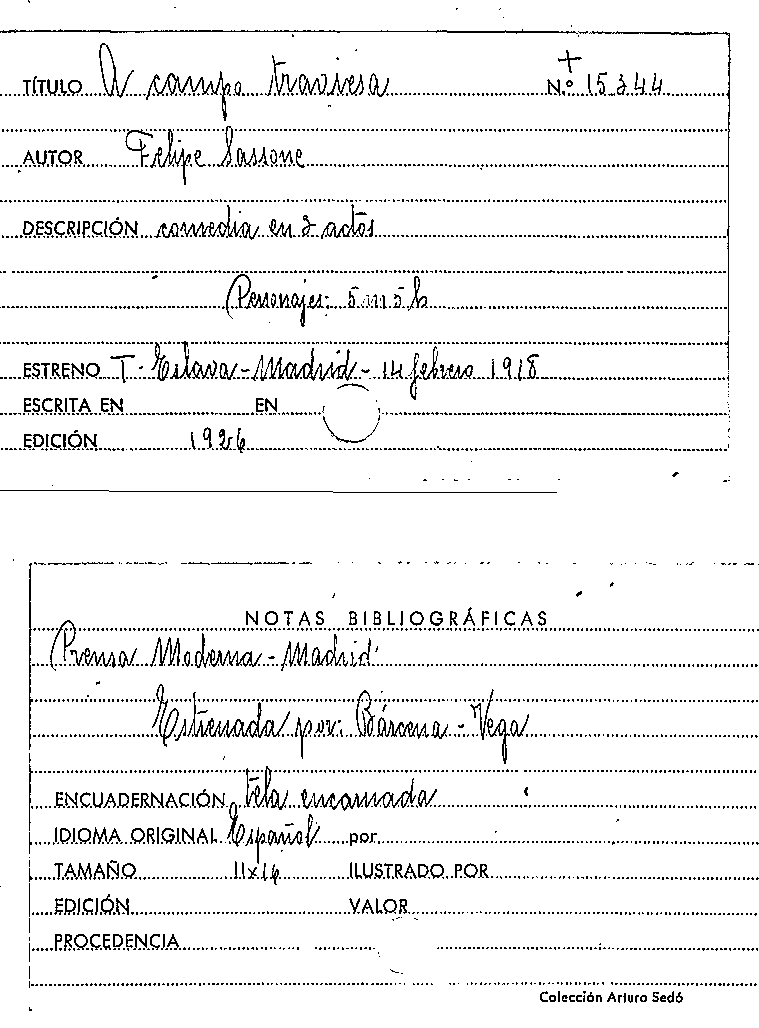 +
TÍTULO A campo traviesa Nº 15344
AUTOR Felipe Sassone
DESCRIPCIÓN comedia en 2 actos
Personajes: 5 m 5 h
ESTRENO T. Eslava - Madrid - 14 febrero 1918
ESCRITA EN EN
EDICIÓN 1926
NOTAS BIBLIOGRÁFICAS
Prensa Moderna - Madrid
Estrenada por: Bárcena - Vega
ENCUADERNACIÓN tela encarnada
IDIOMA ORIGINAL Español por
TAMAÑO 11x16 ILUSTRADO POR
EDICIÓN VALOR
PROCEDENCIA
Colección Arturo Sedó